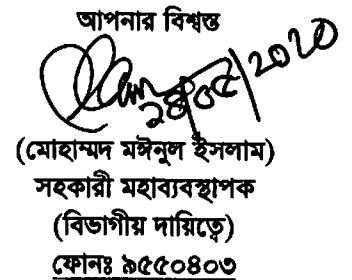 আপনার বিশ্বস্ত
২৪/০৫/২০২০
(মোহাম্মদ মঈনুল ইসলাম)
সহকারী মহাব্যবস্থাপক
(বিভাগীয় দায়িত্বে)
ফোনঃ ৯৫৫০৪০৩